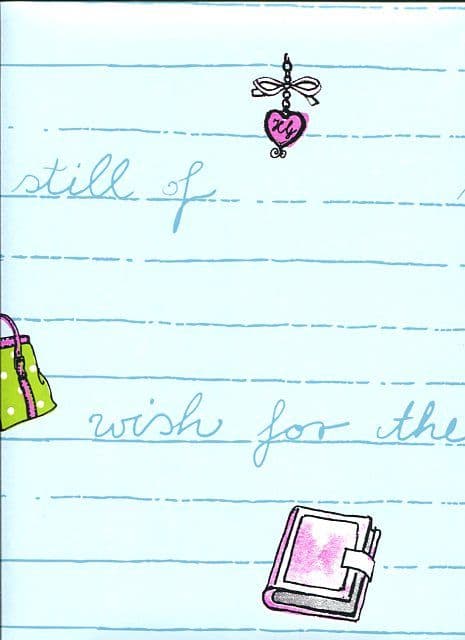 still of
wish for the